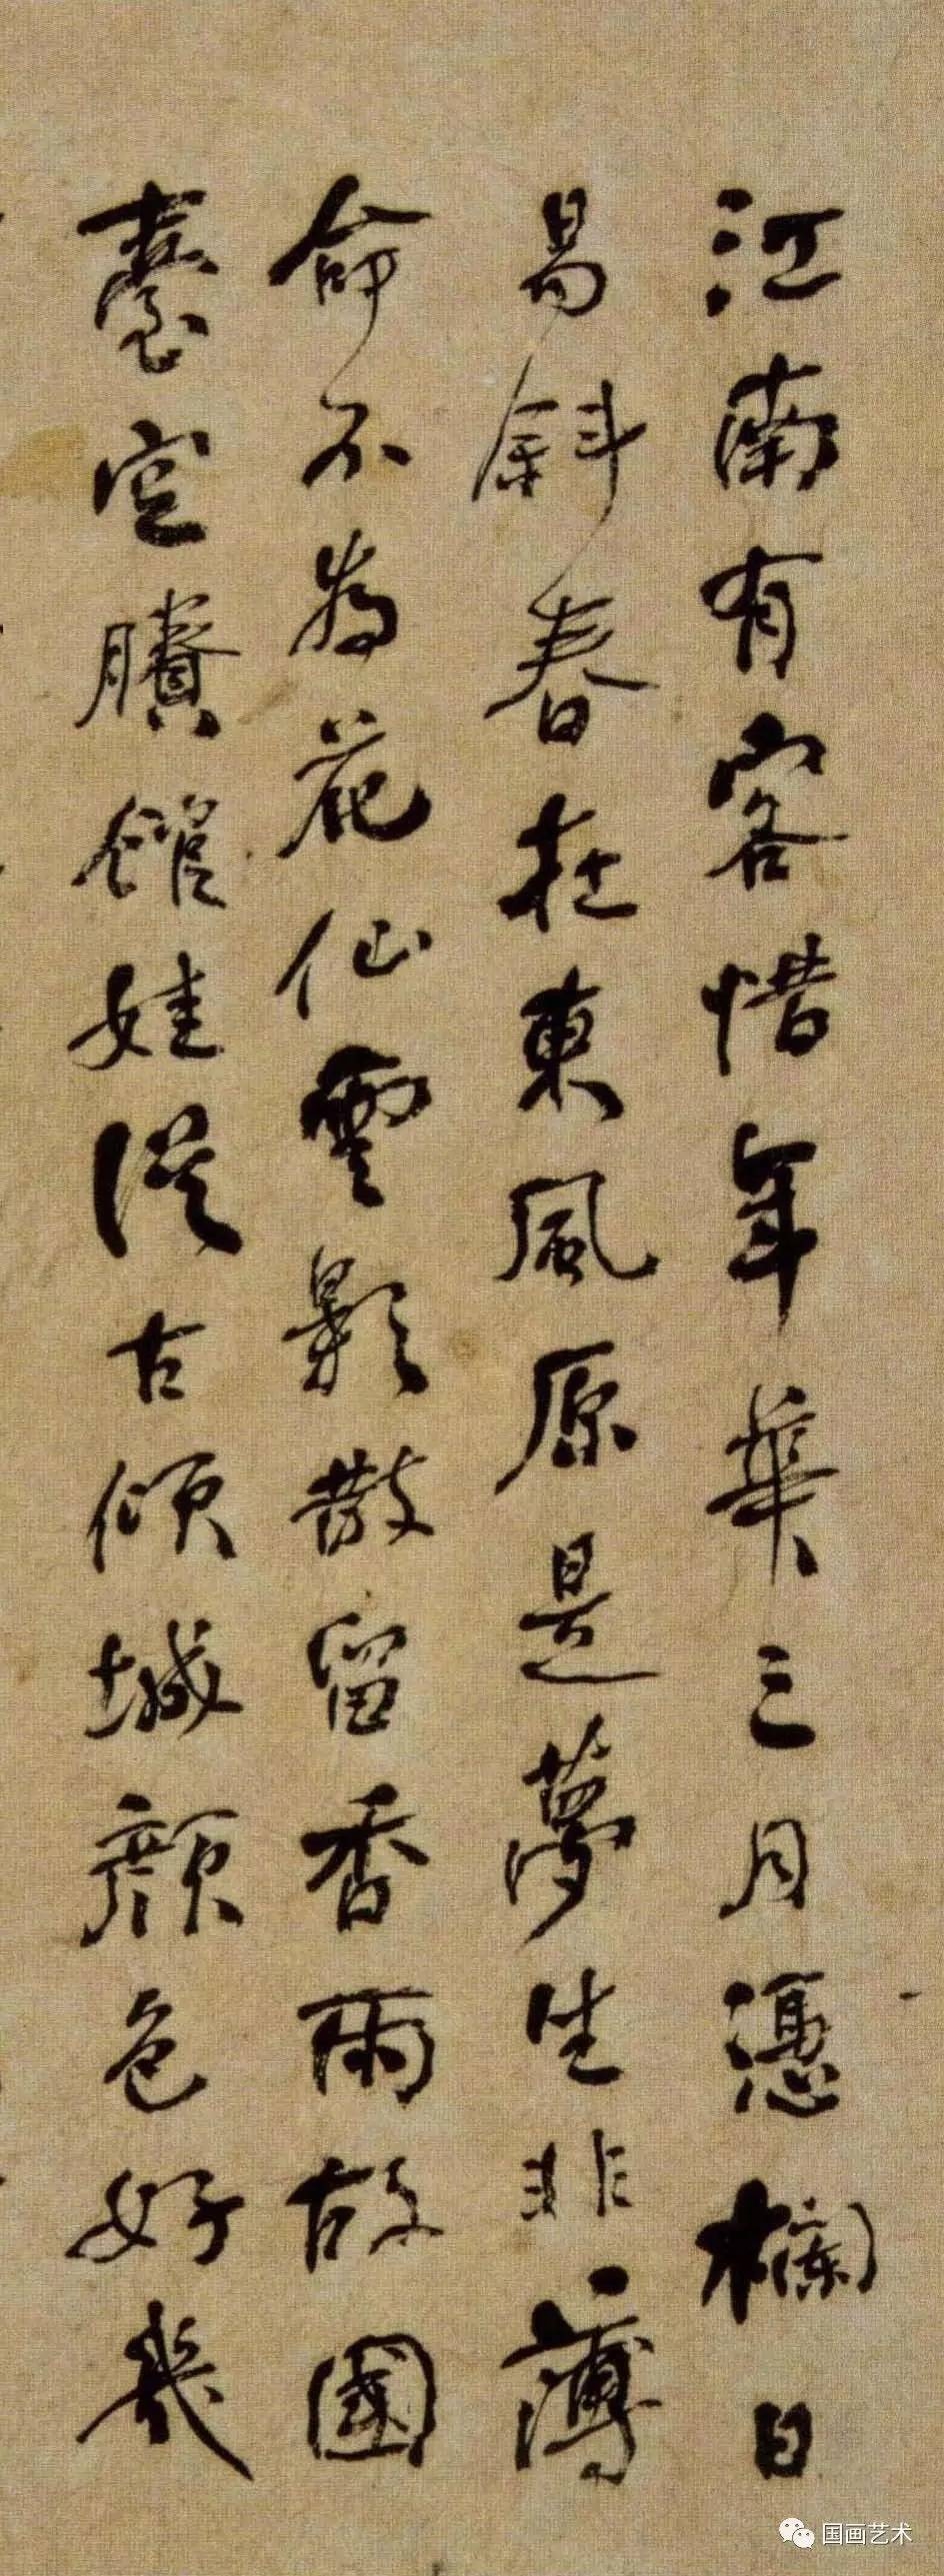 江南有客惜年華三月憑欄日
易斜春在東風原是夢生非薄
命不為花仙雲影散留香雨故國
臺空賸館娃從古傾城顏色好幾
国画艺术